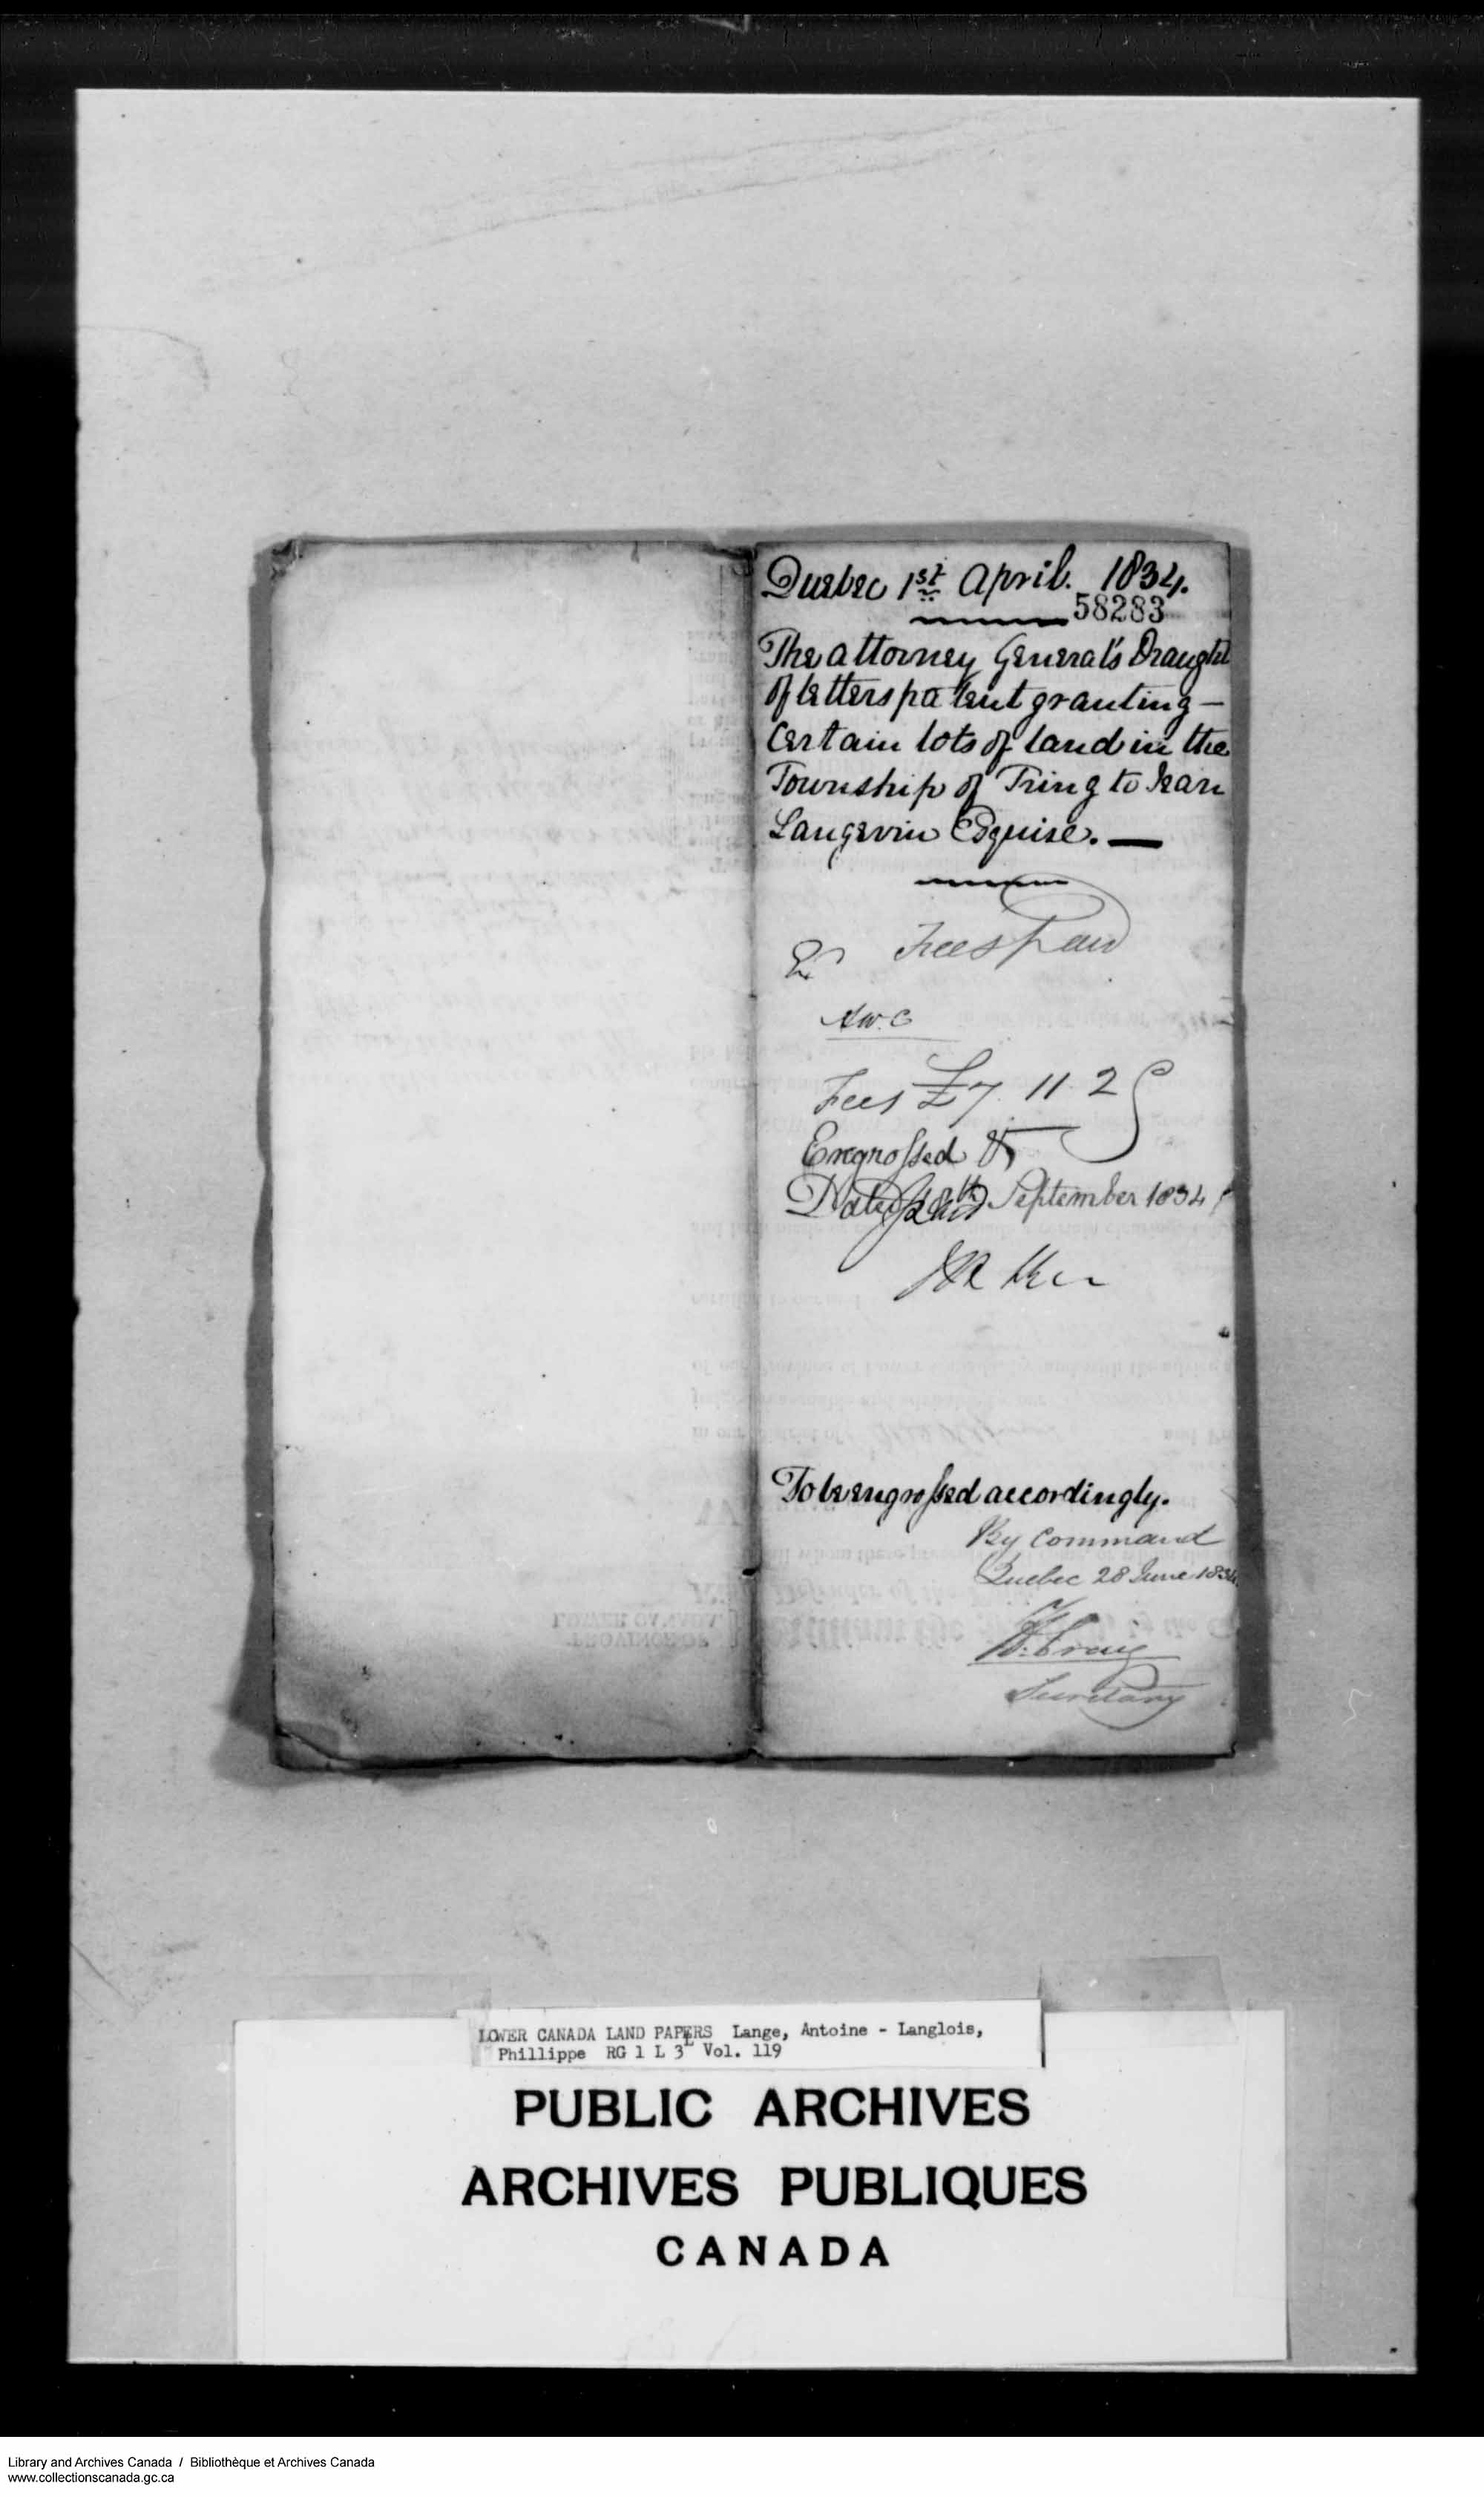 Quebec 1st April. 1834.
58283
The Attorney General's Draught
of letters patent granting —
Certain lots of land in the
Township of Tring to Jean
Langevin Esquire. —
Fees Paid
Fees £7. 11. 2
Engrossed &
Dated September 1834
To be engrossed accordingly.
By Command
Quebec 28 June 1834
H. Craig
Secretary
LOWER CANADA LAND PAPERS Lange, Antoine - Langlois,
Phillippe RG 1 L 3L Vol. 119
PUBLIC ARCHIVES
ARCHIVES PUBLIQUES
CANADA
Library and Archives Canada / Bibliothèque et Archives Canada
www.collectionscanada.gc.ca